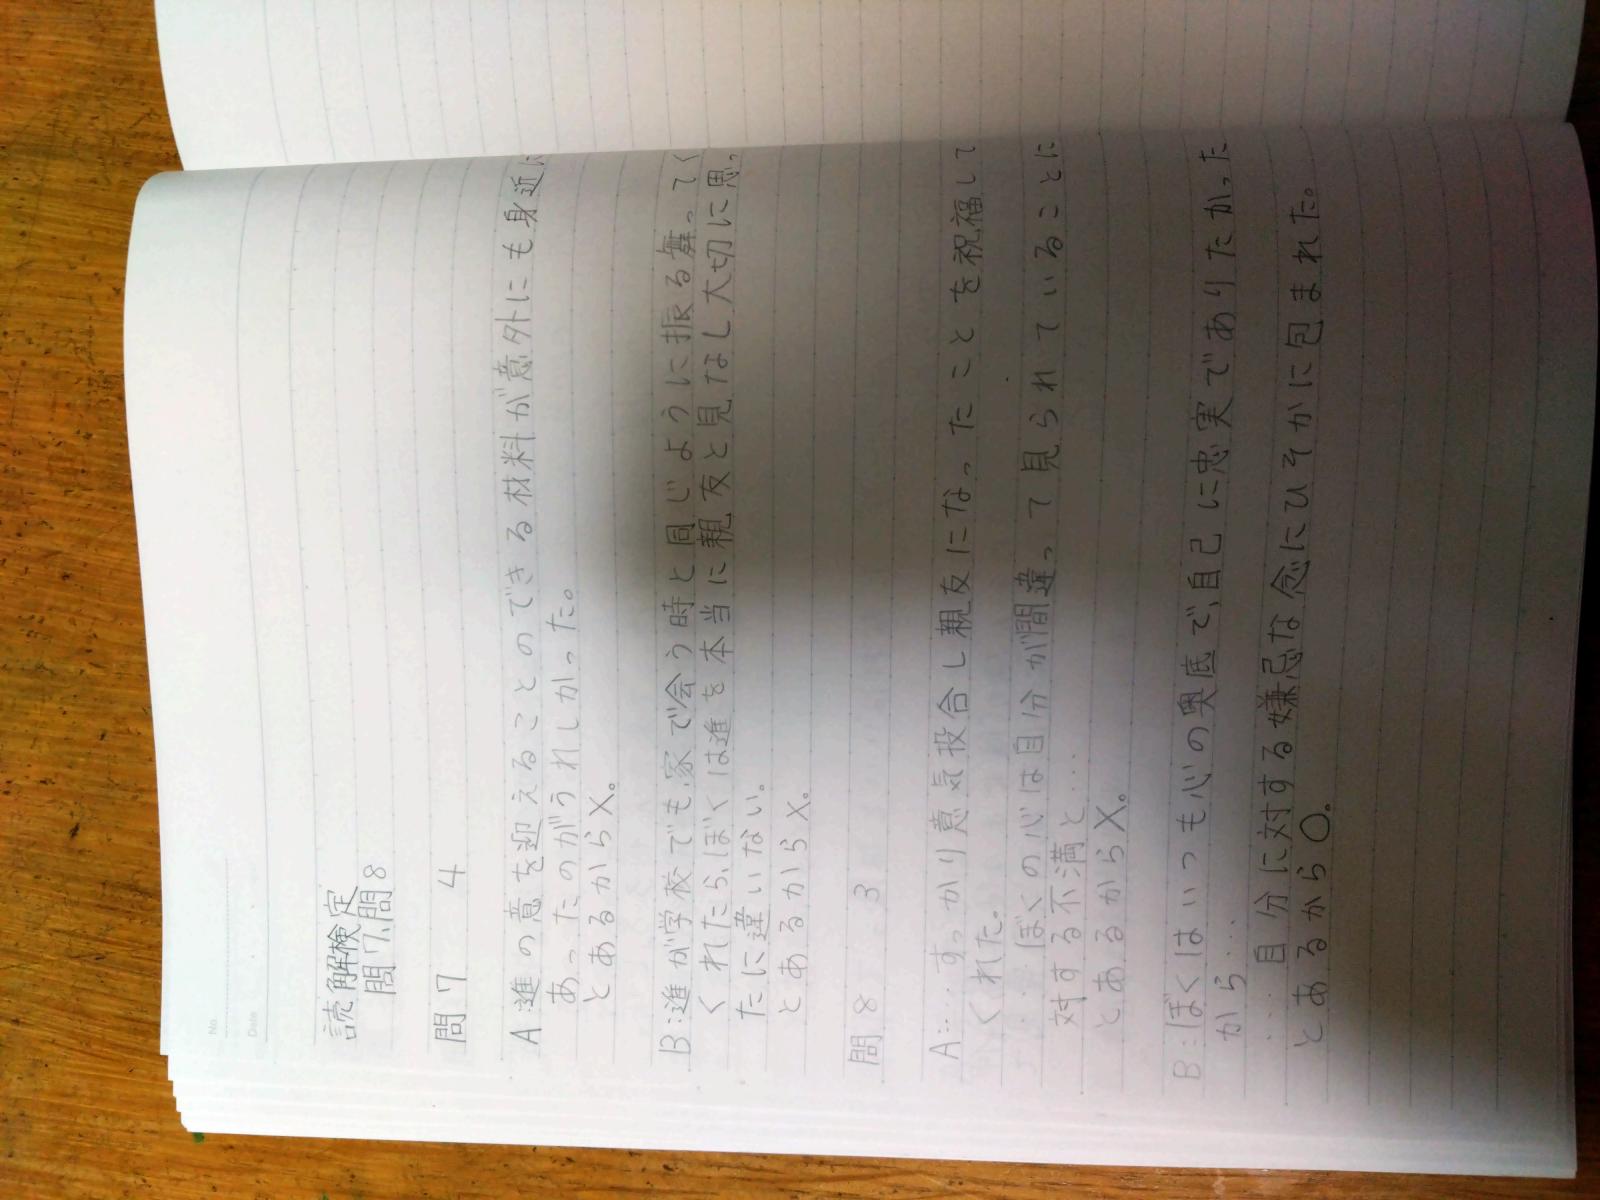 No.
Date
読解検定
問7、問8
問7 4
A:進の意を迎えることのできる材料が意外にも身近に
あったのがうれしかった。
とあるから×。
B:進が学校でも、家で会う時と同じように振る舞ってく
くれたら、ぼくは進を本当に親友と見なし大切に思っ
たに違いない。
とあるから×。
問8 3
A:…すっかり意気投合し親友になったことを祝福して
くれた。
…ぼくの心は自分が間違って見られていることに
対する不満と…
とあるから×。
B:ぼくはいつも心の奥底で、自己に忠実でありたかった
から…
…自分に対する嫌忌な念にひそかに包まれた。
とあるから○。